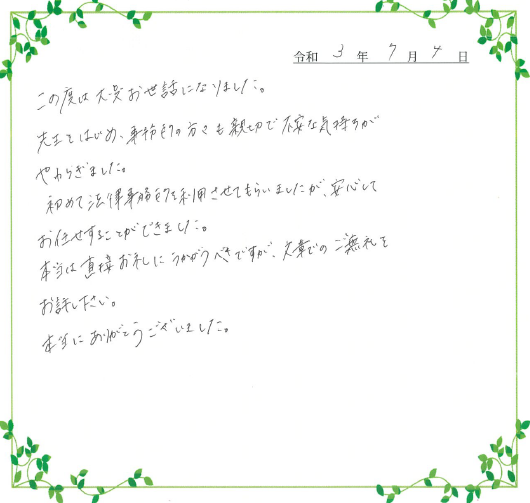 令和 3 年 7 月 4 日
この度は大変お世話になりました。
先生をはじめ、事務所の方々も親切で不安な気持ちが
やわらぎました。
初めて法律事務所を利用させてもらいましたが、安心して
お任せすることができました。
本当は直接お礼にうかがうべきですが、文章でのご無礼を
お許し下さい。
本当にありがとうございました。